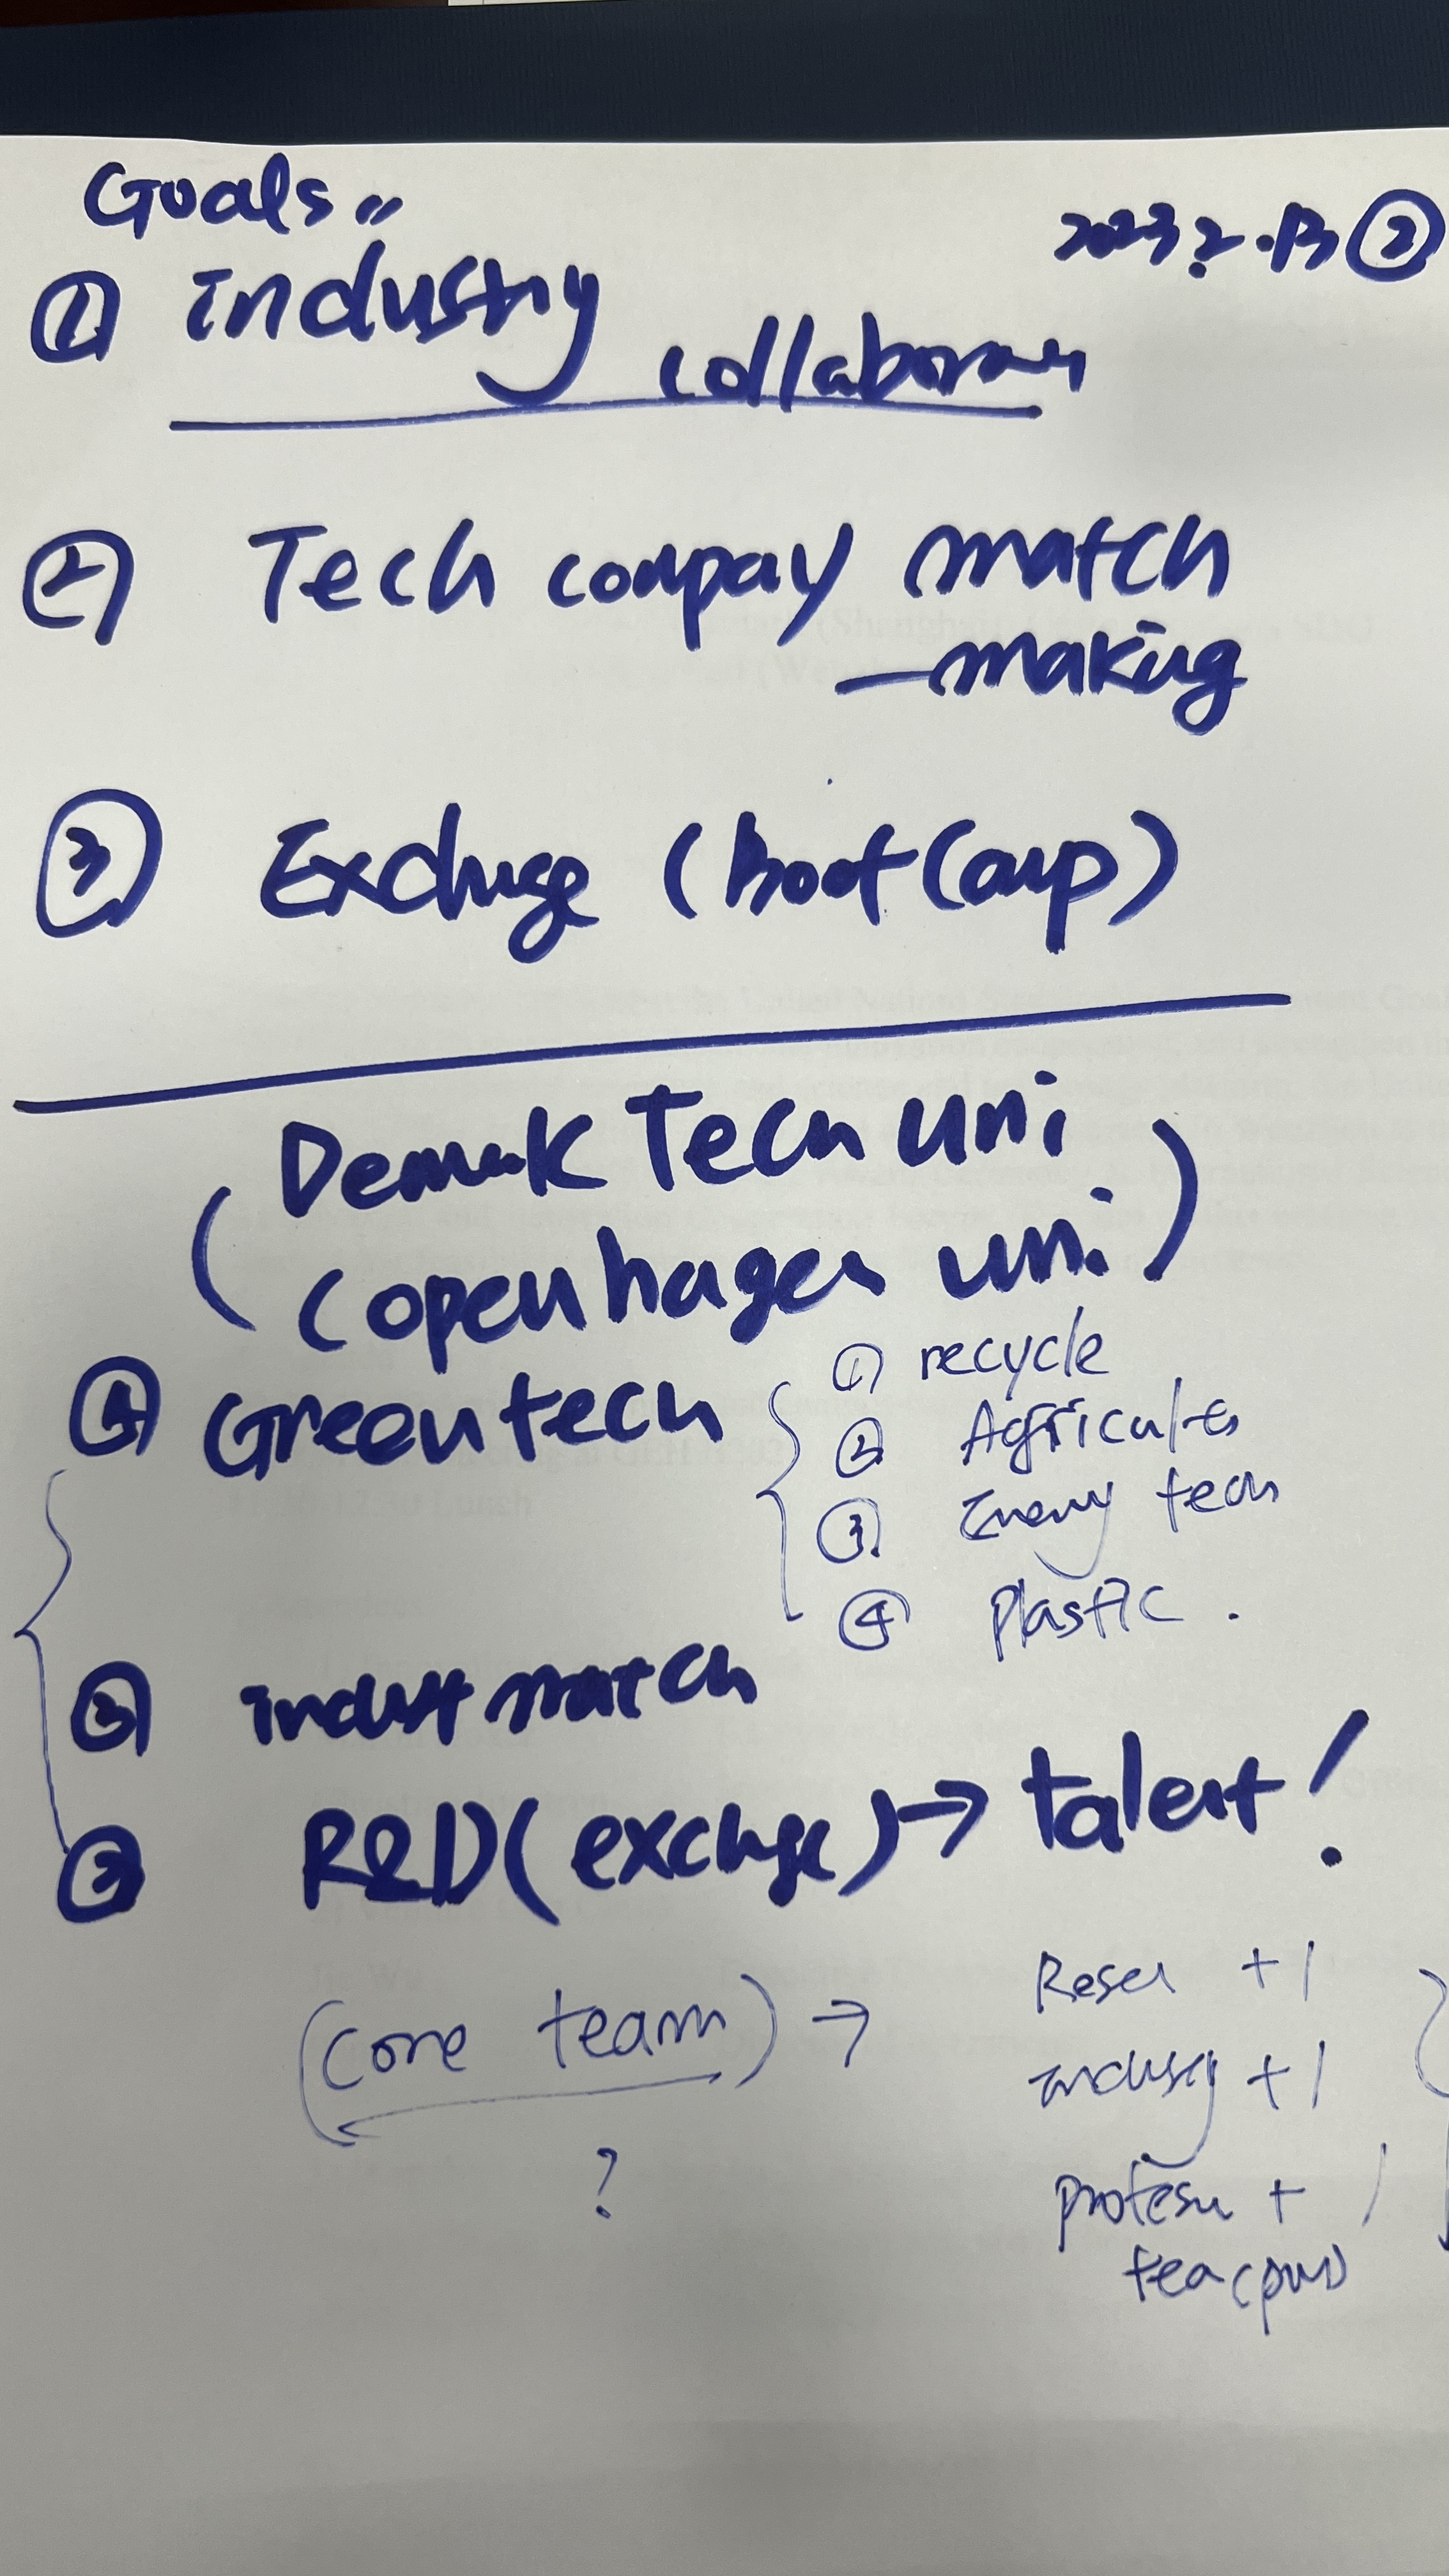 Goals
2023.2.13 ②
① industry
collaboran
② Tech company match
—making
③ Exchnge (Bootcamp)
(Demark Tech uni
Copenhagen uni)
① Green tech
① recycle
② Agricultu
③ Energy tech
④ Plastic.
② indust match
③ R&D (exchnge) → talent!
(core team) →
?
Reser +1
industry +1
profesu + 1